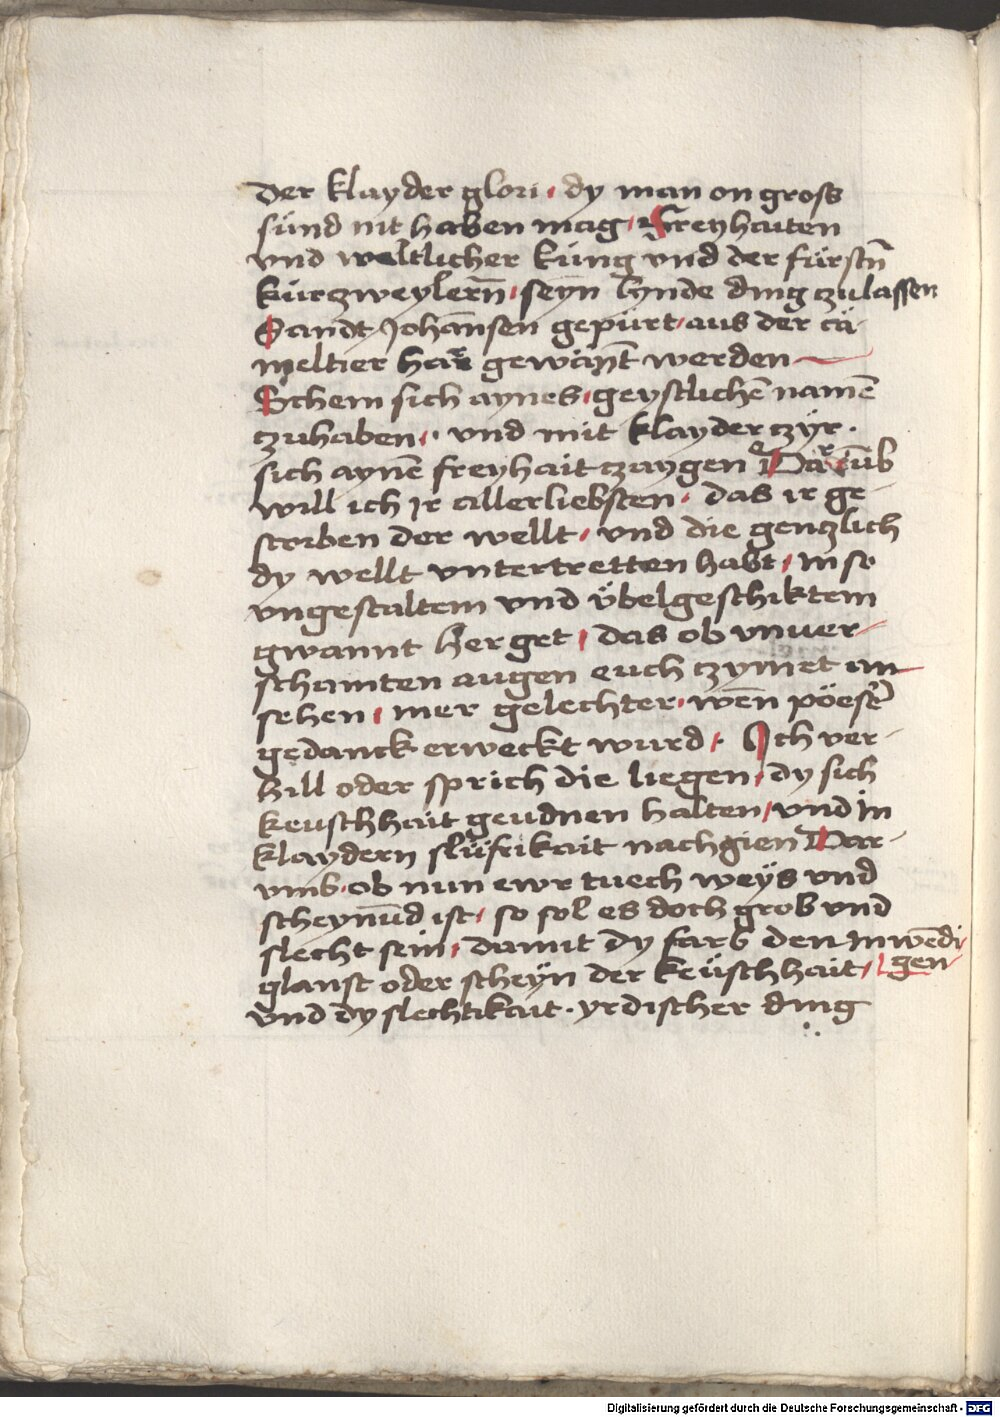 der klayder glori · dy man on gross
sünd nit haben mag · Freyhaiten
vnd weltlicher küng vnd der fürstn̄
kürczweylern̄ · seyn lynde ding czulassen
Sandt Johānsen gepürt · aus der cä-
meltier har gewän̄t werden
Schem sich aynes · geystlichē namē
czuhaben · vnd mit klayder czÿr ·
sich aynē freyhait czaygen Darūb
will ich jr allerliebsten · das ir ge-
storben der wellt · vnd die genczlich
dy wellt vntertretten habt · in so
vngestaltem vnd übelgeschiktem
gwannt her get · das ob vnuer-
schamten augen euch czymet an
sehen · mer gelechter · wēn pöeser̄
gedanck erweckt wurd · Ich ver-
hill oder sprich die liegen · dy sich
keuschhait geudnen halten · vnd in
klaydern slüfrikait nachgien Dar-
vmb · ob nun ewr tuech weÿs vnd
scheynūd ist · so sol es doch grob vnd
slecht sein · damit dy farb den inwēdi
gen
glanst oder scheÿn der keüschhait ·
vnd dy slechtikait · yrdischer ding
Digitalisierung gefördert durch die Deutsche Forschungsgemeinschaft - DFG